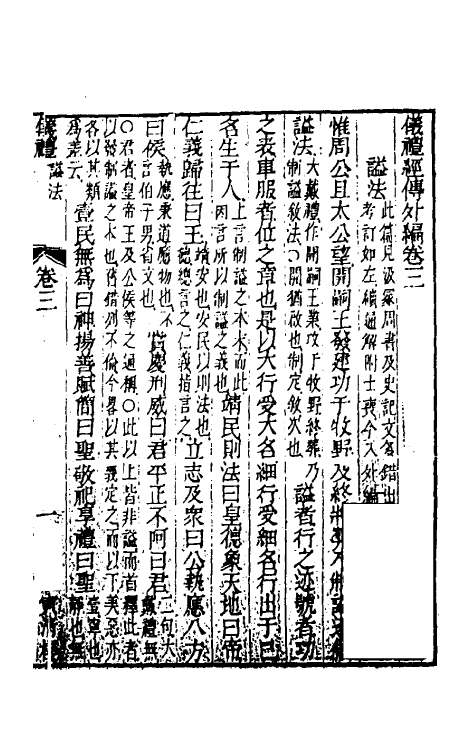 儀禮經傳外編卷三
諡法
此篇見汲冢周書及史記文多錯出
考訂如左續通解附士喪今入外編
惟周公旦太公望開嗣王發建功于牧野及終將葬乃制諡
諡法
大戴禮作開嗣王業攻于牧野終葬乃
制諡敘法○開猶啟也制定敘次也
諡者行之迹號者功
之表車服者位之章也是以大行受大名細行受細名行出于己
名生于人
上言制諡之本末而此
因言所以制諡之義也
靖民則法曰皇德象天地曰帝
仁義歸往曰王
靖安也安民以則法也
德總言之仁義指言之
立志及衆曰公執應八方
曰侯
執應衆道應物也不
言伯子男省文也
賞慶刑威曰君平正不阿曰君
二句大
戴禮無
○君者皇帝王及公侯等之通稱○此以上皆非諡而首釋此者
以爲制諡之本也舊錯列不倫今畧以其義定之而以下美惡亦
各以其類
爲差云
壹民無爲曰神揚善賦簡曰聖敬祀享禮曰聖
壹寧也
靜也無
儀禮 諡法 卷三 一